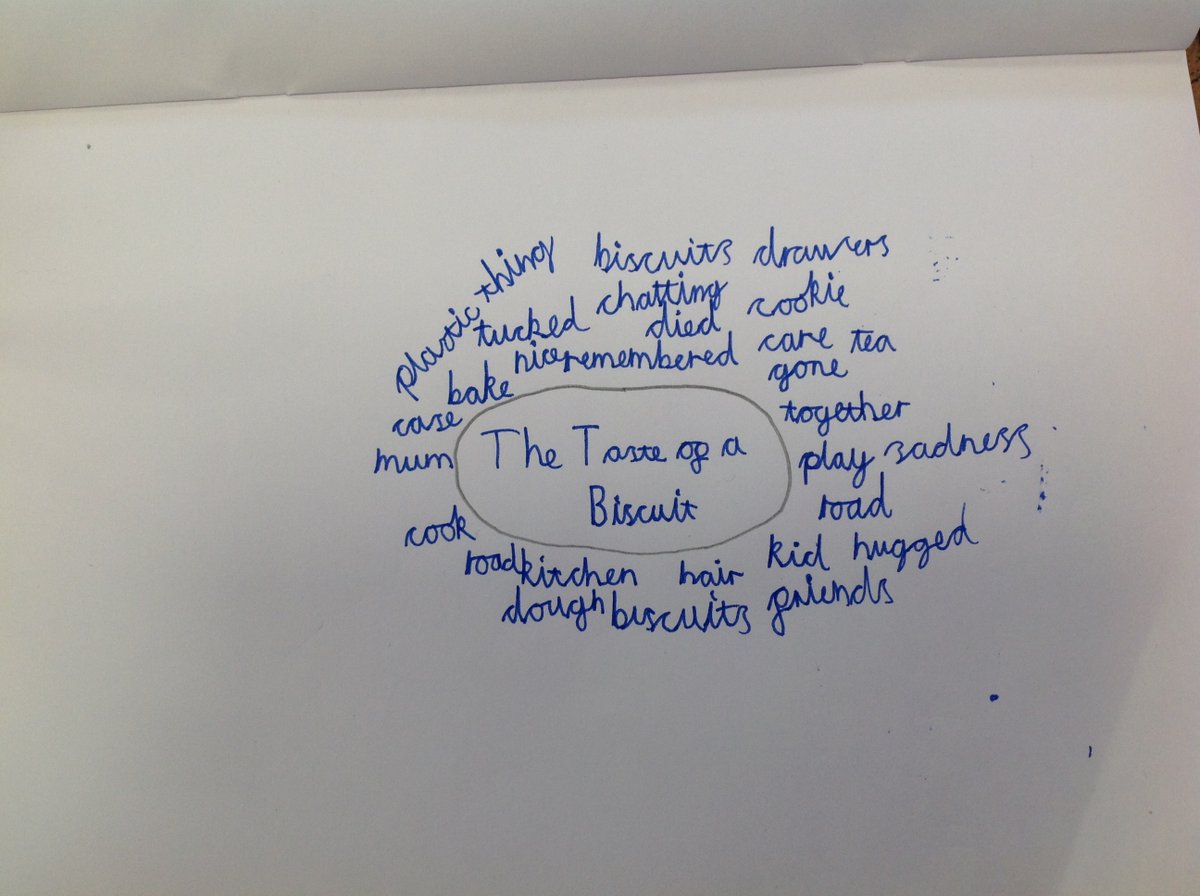 plastic thing biscuits drawers
tucked chatting cookie
died
nice remembered care tea
bake gone
case together
mum The Taste of a play sadness
Biscuit road
cook kid hugged
road kitchen hair
dough biscuits friends